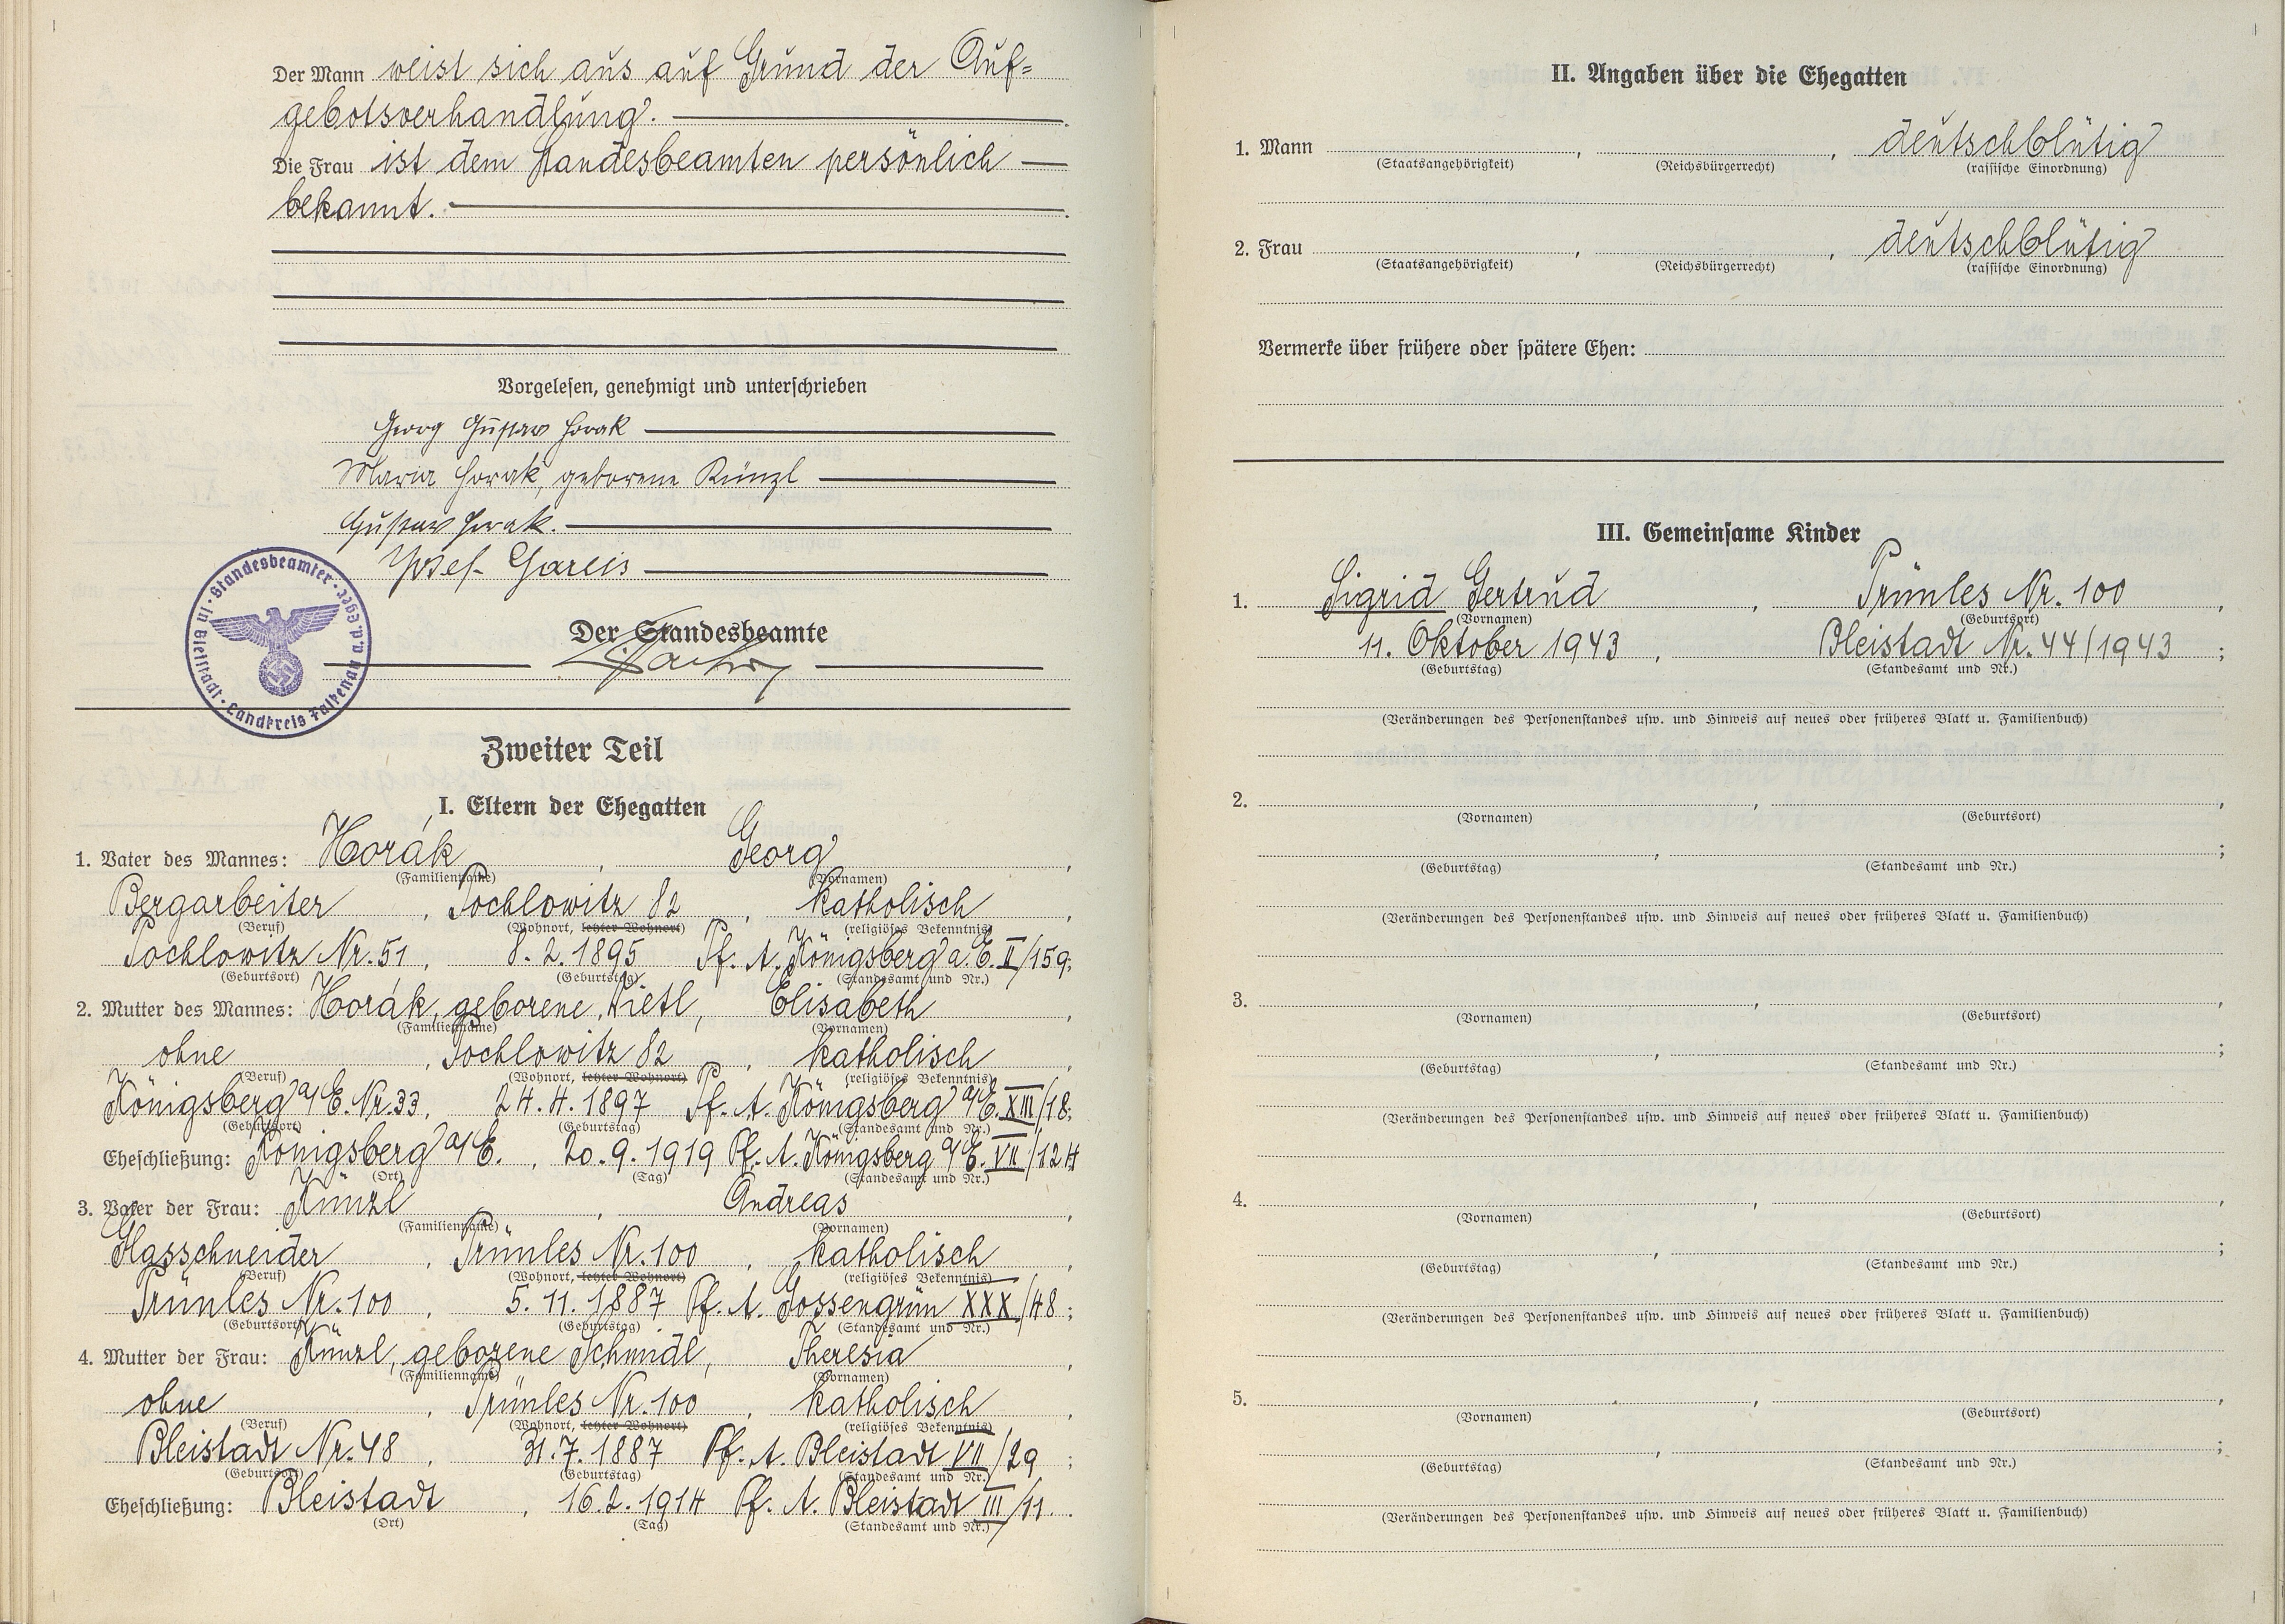 Der Mann weist sich aus auf Grund der Auf=
gebotsverhandlung.
Die Frau ist dem Standesbeamten persönlich
bekannt.
Vorgelesen, genehmigt und unterschrieben
Georg Gustav Horak
Maria Horak, geborene Künzl
Gustav Horak.
Josef Gareis
Der Standesbeamte
Standesbeamter · in Bleistadt · Landkreis Falkenau a.d. Eger
Zweiter Teil
I. Eltern der Ehegatten
1. Vater des Mannes: Horák, Georg,
(Familienname) (Vornamen)
Bergarbeiter, Pochlowitz 82, katholisch,
(Beruf) (Wohnort, letzter Wohnort) (religiöses Bekenntnis)
Pochlowitz Nr. 51, 8. 2. 1895 Pf. A. Königsberg a. E. II/159;
(Geburtsort) (Geburtstag) (Standesamt und Nr.)
2. Mutter des Mannes: Horák, geborene Lietl, Elisabeth,
(Familienname) (Vornamen)
ohne, Pochlowitz 82, katholisch,
(Beruf) (Wohnort, letzter Wohnort) (religiöses Bekenntnis)
Königsberg a/E. Nr. 33, 24. 4. 1897 Pf. A. Königsberg a/E. XIII/18;
(Geburtsort) (Geburtstag) (Standesamt und Nr.)
Eheschließung: Königsberg a/E., 20. 9. 1919 Pf. A. Königsberg a/E. VII/124
(Ort) (Tag) (Standesamt und Nr.)
3. Vater der Frau: Künzl, Andreas,
(Familienname) (Vornamen)
Glasschneider, Prünles Nr. 100, katholisch,
(Beruf) (Wohnort, letzter Wohnort) (religiöses Bekenntnis)
Prünles Nr. 100, 5. 11. 1887 Pf. A. Gossengrün XXX/48;
(Geburtsort) (Geburtstag) (Standesamt und Nr.)
4. Mutter der Frau: Künzl, geborene Schmidl, Theresia,
(Familienname) (Vornamen)
ohne, Prünles Nr. 100, katholisch,
(Beruf) (Wohnort, letzter Wohnort) (religiöses Bekenntnis)
Bleistadt Nr. 48, 31. 7. 1887 Pf. A. Bleistadt VII/29;
(Geburtsort) (Geburtstag) (Standesamt und Nr.)
Eheschließung: Bleistadt, 16. 2. 1914 Pf. A. Bleistadt III/11.
(Ort) (Tag) (Standesamt und Nr.)
II. Angaben über die Ehegatten
1. Mann , , deutschblütig
(Staatsangehörigkeit) (Reichsbürgerrecht) (rassische Einordnung)
2. Frau , , deutschblütig
(Staatsangehörigkeit) (Reichsbürgerrecht) (rassische Einordnung)
Vermerke über frühere oder spätere Ehen:
III. Gemeinsame Kinder
1. Sigrid Gertrud, Prünles Nr. 100,
(Vornamen) (Geburtsort)
11. Oktober 1943, Bleistadt Nr. 44/1943;
(Geburtstag) (Standesamt und Nr.)
(Veränderungen des Personenstandes usw. und Hinweis auf neues oder früheres Blatt u. Familienbuch)
2. , ,
(Vornamen) (Geburtsort)
, ;
(Geburtstag) (Standesamt und Nr.)
(Veränderungen des Personenstandes usw. und Hinweis auf neues oder früheres Blatt u. Familienbuch)
3. , ,
(Vornamen) (Geburtsort)
, ;
(Geburtstag) (Standesamt und Nr.)
(Veränderungen des Personenstandes usw. und Hinweis auf neues oder früheres Blatt u. Familienbuch)
4. , ,
(Vornamen) (Geburtsort)
, ;
(Geburtstag) (Standesamt und Nr.)
(Veränderungen des Personenstandes usw. und Hinweis auf neues oder früheres Blatt u. Familienbuch)
5. , ,
(Vornamen) (Geburtsort)
, ;
(Geburtstag) (Standesamt und Nr.)
(Veränderungen des Personenstandes usw. und Hinweis auf neues oder früheres Blatt u. Familienbuch)